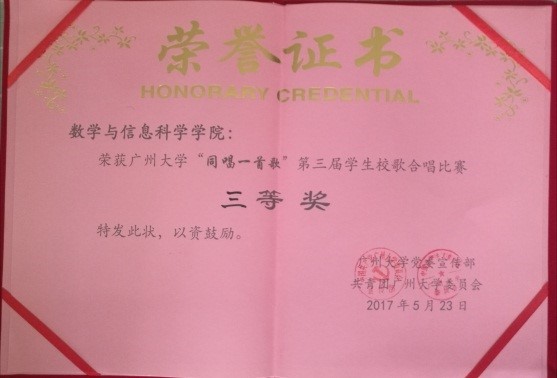 荣誉证书
HONORARY CREDENTIAL
数学与信息科学学院：
荣获广州大学“同唱一首歌”第三届学生校歌合唱比赛
三等奖
特发此状，以资鼓励。
广州大学党委宣传部
共青团广州大学委员会
2017年5月23日